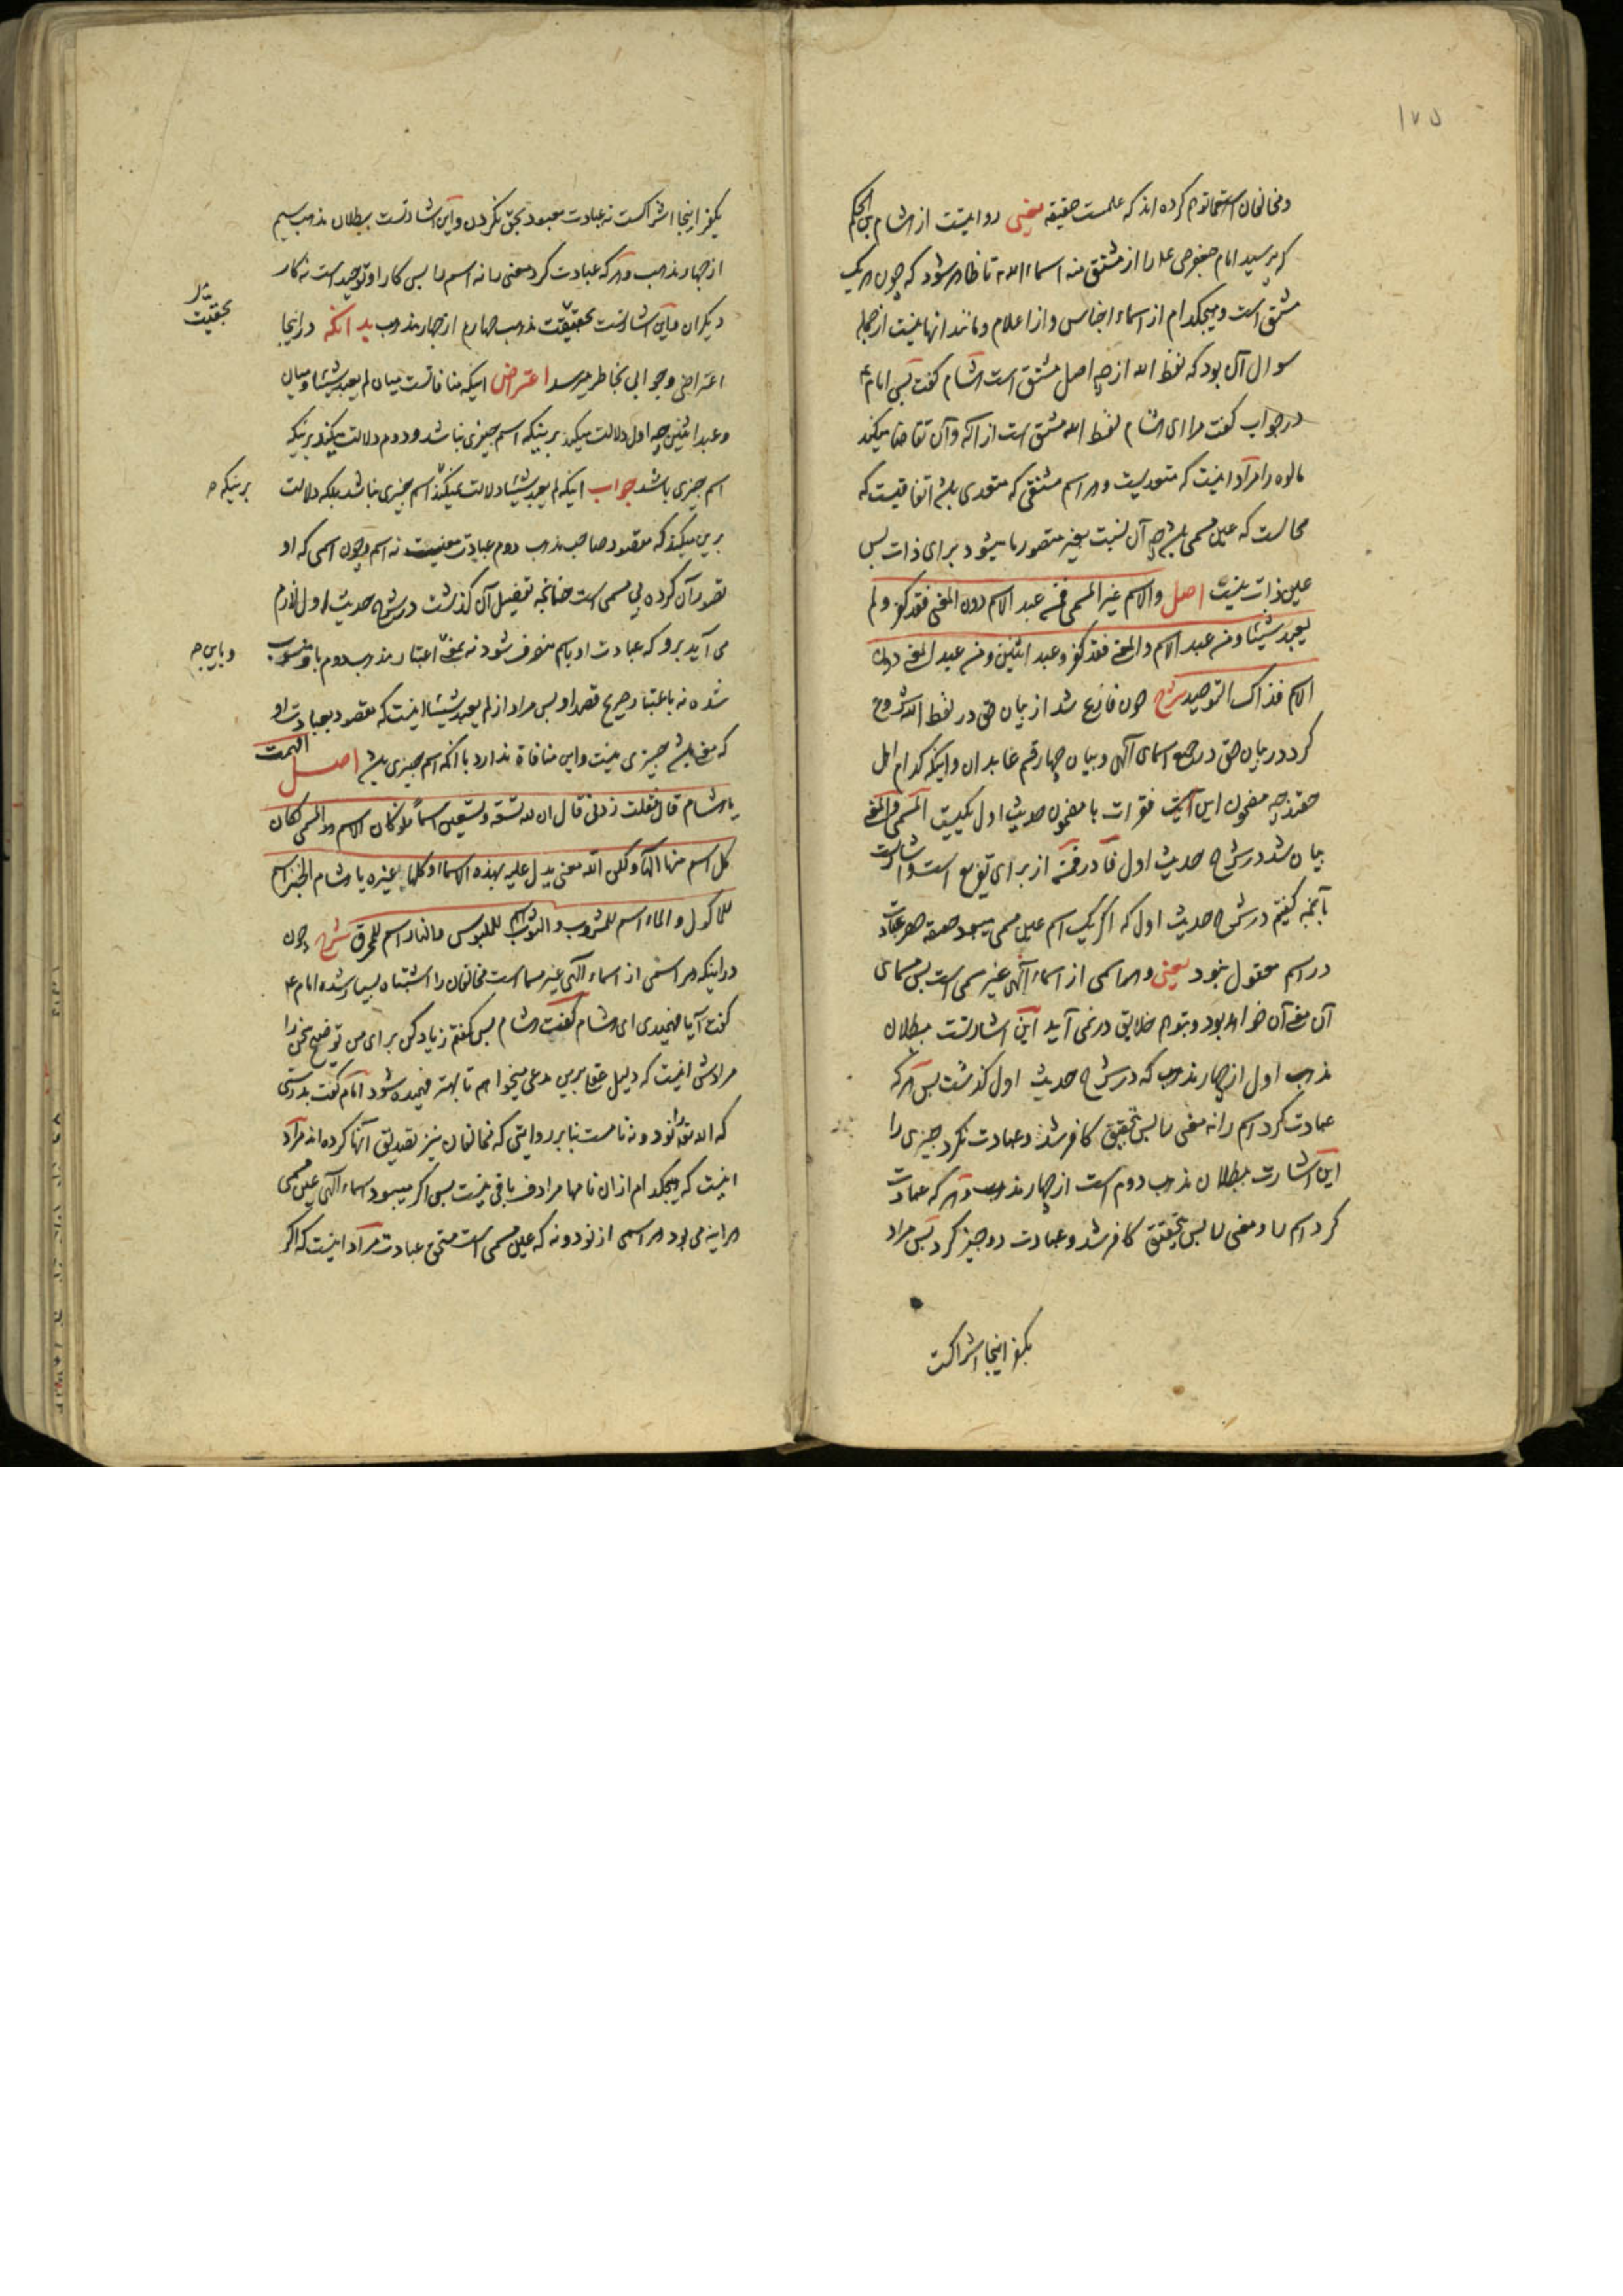 ۱۷۵
ومخالفان اسقاط توهم کرده اند که علمست حقیقه یعنی روایتست از هشام بن الحکم
که پرسید امام جعفر ص ع را از مشتق منه اسماء الله تا ظاهر شود که چون هر یک
مشتق است و هیچکدام از اسماء اجناس و از اعلام و مانند انها نیست از جمله
سوال آن بود که لفظ الله از چه اصل مشتق است هشام گفت پس امام ع
در جواب گفت مرا ای هشام لفظ الله مشتق است از اله و آن تقاضا میکند
مالوه را مراد اینست که متعدیست و هر اسم مشتقی که متعدی باشد اتفاقیست که
محالست که عین مسمی باشد چه آن نسبت بغیر متصور نمیشود برای ذات پس
عین ذات نیست اصل والاسم غیر المسمی فمن عبد الاسم دون المعنی فقد کفر و لم
یعبد شیئا و من عبد الاسم والمعنی فقد کفر و عبد اثنین و من عبد المعنی دون
الاسم فذاک التوحید شرح چون فارغ شد از بیان حق در لفظ الله شروع
کرد در بیان حق در جمیع اسمای الهی و بیان چهار قسم عابدان و اینکه کدام اهل
حقند چه مضمون این فقرات با مضمون حدیث اول یکیست المسمی والمعنی
بیان شد در شرح حدیث اول فا در فمن از برای تفریع است و اشارتست
بآنچه گفتیم در شرح حدیث اول که اگر یک اسم عین مسمی میبود حصر عبادت
در اسم معقول نبود یعنی و هر اسمی از اسماء الهی غیر مسمی است پس مسمای
آن معنی آن خواهد بود و بتوهم خلایق در نمی آید این اشارتست ببطلان
مذهب اول از چهار مذهب که در شرح حدیث اول گذشت پس هر که
عبادت کرد اسم را نه معنی را پس بتحقیق کافر شد و عبادت نکرد چیزی را
این اشارت ببطلان مذهب دوم است از چهار مذهب و هر که عبادت
کرد اسم را و معنی را پس بتحقیق کافر شد و عبادت دو چیز کرد پس مراد
بکفر اینجا اشراکست
بکفر اینجا اشراکست نه عبادت معبود بحق نکردن و این اشارتست ببطلان مذهب سیم
از چهار مذهب و هر که عبادت کرد معنی را نه اسم را پس کار او توحید است نه کار
دیگران و این اشارتست بحقیقت مذهب چهارم از چهار مذهب بدانکه در اینجا
بحقیت
اعتراضی و جوابی بخاطر میرسد اعتراض اینکه منافاتست میان لم یعبد شیئا و میان
و عبد اثنین چه اول دلالت میکند بر اینکه اسم چیزی نباشد و دوم دلالت میکند بر اینکه
اسم چیزی باشد جواب اینکه لم یعبد شیئا دلالت نمیکند اسم چیزی نباشد بلکه دلالت
بر اینکه
برین میکند که مقصود صاحب مذهب دوم عبادت معنیست نه اسم و چون اسمی که او
تصور آن کرده بی مسمی است چنانچه تفصیل آن گذشت در شرح حدیث اول لازم
می آید برو که عبادت او باسم منصرف شود نه بمعنی اعتبار مذهب دوم باو منسوب
و باین
شده نه باعتبار صریح قصد او پس مراد از لم یعبد شیئا اینست که مقصود بعبادت او
که معنی باشد چیزی نیست و این منافاة ندارد با آنکه اسم چیزی باشد اصل افهمت
یا هشام قال فقلت زدنی قال ان لله تسعة و تسعین اسماً فلو کان الاسم هو المسمی لکان
کل اسم منها الٓها و لکن الله معنی یدل علیه بهذه الاسماء و کلها غیره یا هشام الخبز اسم
للماکول و الماء اسم للمشروب و الثوب اسم للملبوس و النار اسم للمحرق شرح چون
در اینکه هر اسمی از اسماء الهی غیر مسما است مخالفان را اشتباه بسیار شده امام ع
گفت آیا فهمیدی ای هشام گفت هشام پس گفتم زیاد کن برای من توضیح سخن را
مرادش اینست که دلیل عقلی برین مدعی میخواهم تا بهتر فهمیده شود امام گفت بدرستی
که الله را نود و نه نامست بنابر روایتی که مخالفان نیز تصدیق آنها کرده اند مراد
اینست که هیچکدام از ان نامها مرادف باقی نیست پس اگر میبود اسماء الهی عین مسمی
هر اینه می بود هر اسمی از نود و نه که عین مسمی است مستحق عبادت مراد اینست که اگر